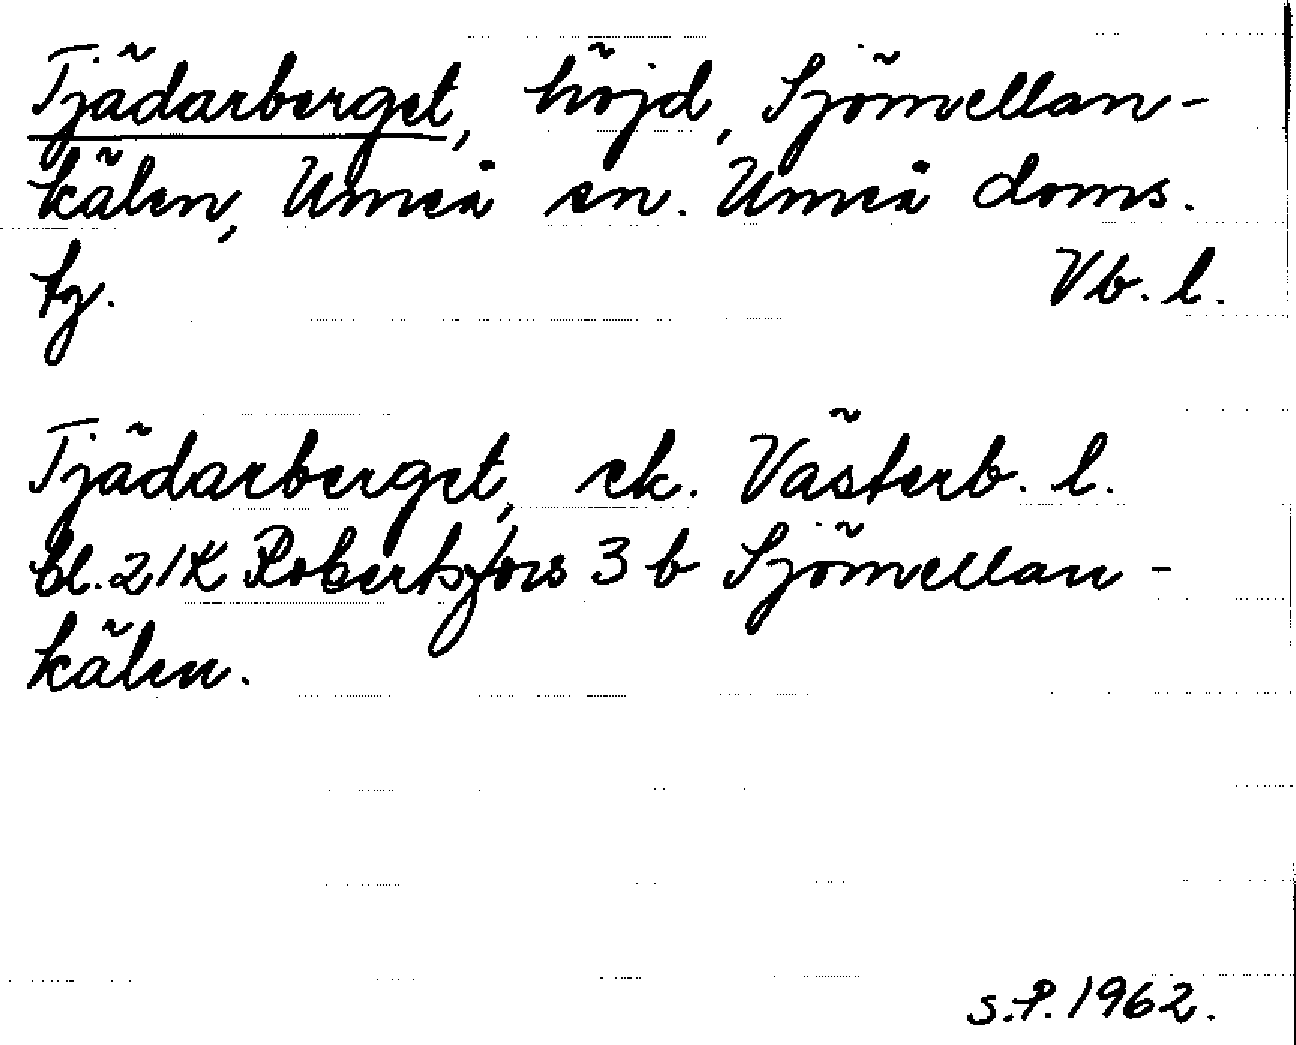 Tjädarberget, höjd, Sjömellan-
kälen, Umeå sn. Umeå doms.
tg. Vb. l.
Tjädarberget, ek. Västerb. l.
bl. 21K Robertsfors 3 b Sjömellan-
kälen.
S.P. 1962.